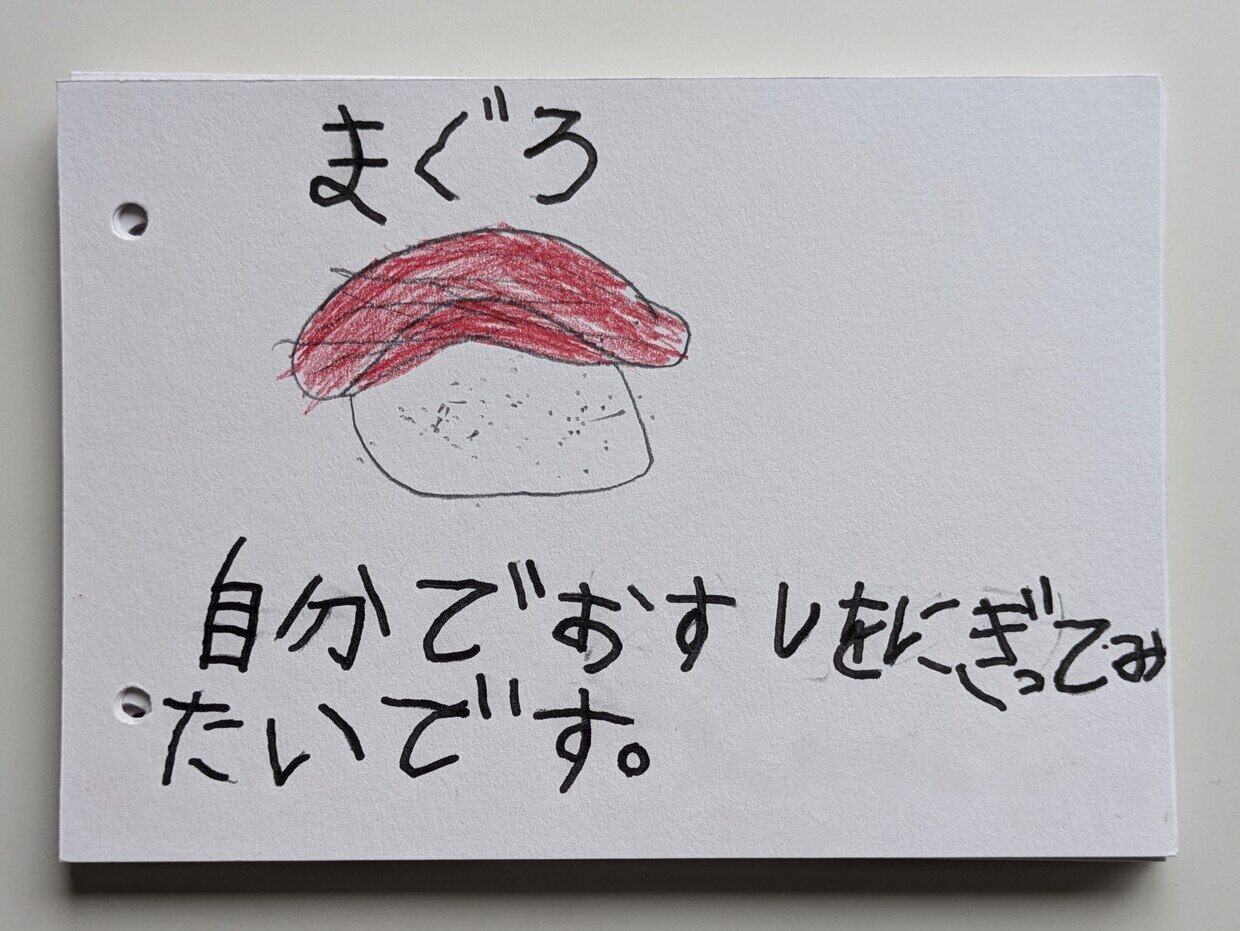 まぐろ
自分でおすしをにぎってみ
たいです。